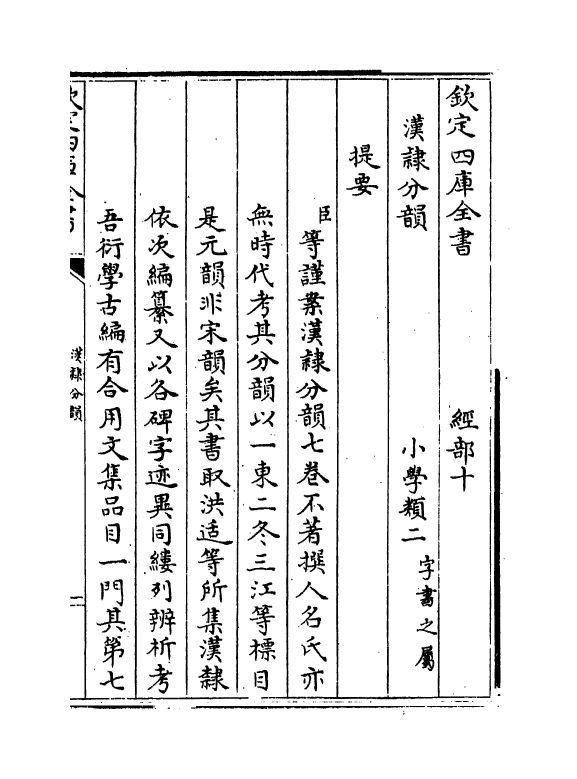 欽定四庫全書　經部十
漢隸分韻　小學類二字書之屬
提要
臣等謹案漢隸分韻七卷不著撰人名氏亦
無時代考其分韻以一東二冬三江等標目
是元韻非宋韻矣其書取洪适等所集漢隸
依次編纂又以各碑字迹異同縷列辨析考
吾衍學古編有合用文集品目一門其第七
漢隸分韻
一